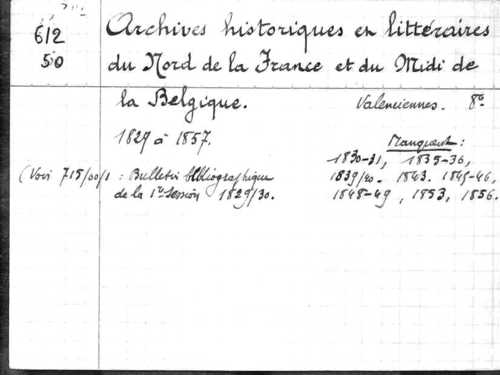 612
50
Archives historiques en littéraires
du Nord de la France et du Midi de
la Belgique.
Valenciennes. 8º
1829 à 1857.
Manquent:
1830-31, 1835-36,
(Voir 715/00/1 : Bulletin bibliographique
1839/40. 1843. 1845-46,
de la 1re Session 1829/30.
1848-49, 1853, 1856.